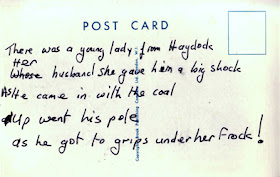 POST CARD
There was a young lady from Haydock
Her
Whose husband she gave him a big shock
As He came in with the coal
Up went his pole
as he got to grips under her frock!